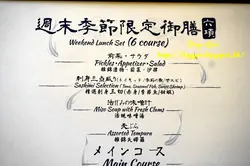 週末季節限定御膳 六項
Weekend Lunch Set (6 course)
前菜・サラダ
Pickles・Appetizer・Salad
雜錦漬物・前菜・沙律
刺身三点盛り
Sashimi Selection
雜選刺身三切
汁付みの味噌汁
Miso Soup with Fresh Clams
活蜆味噌湯
天ぷら
Assorted Tempura
雜錦天婦羅
メインコース
Main Course